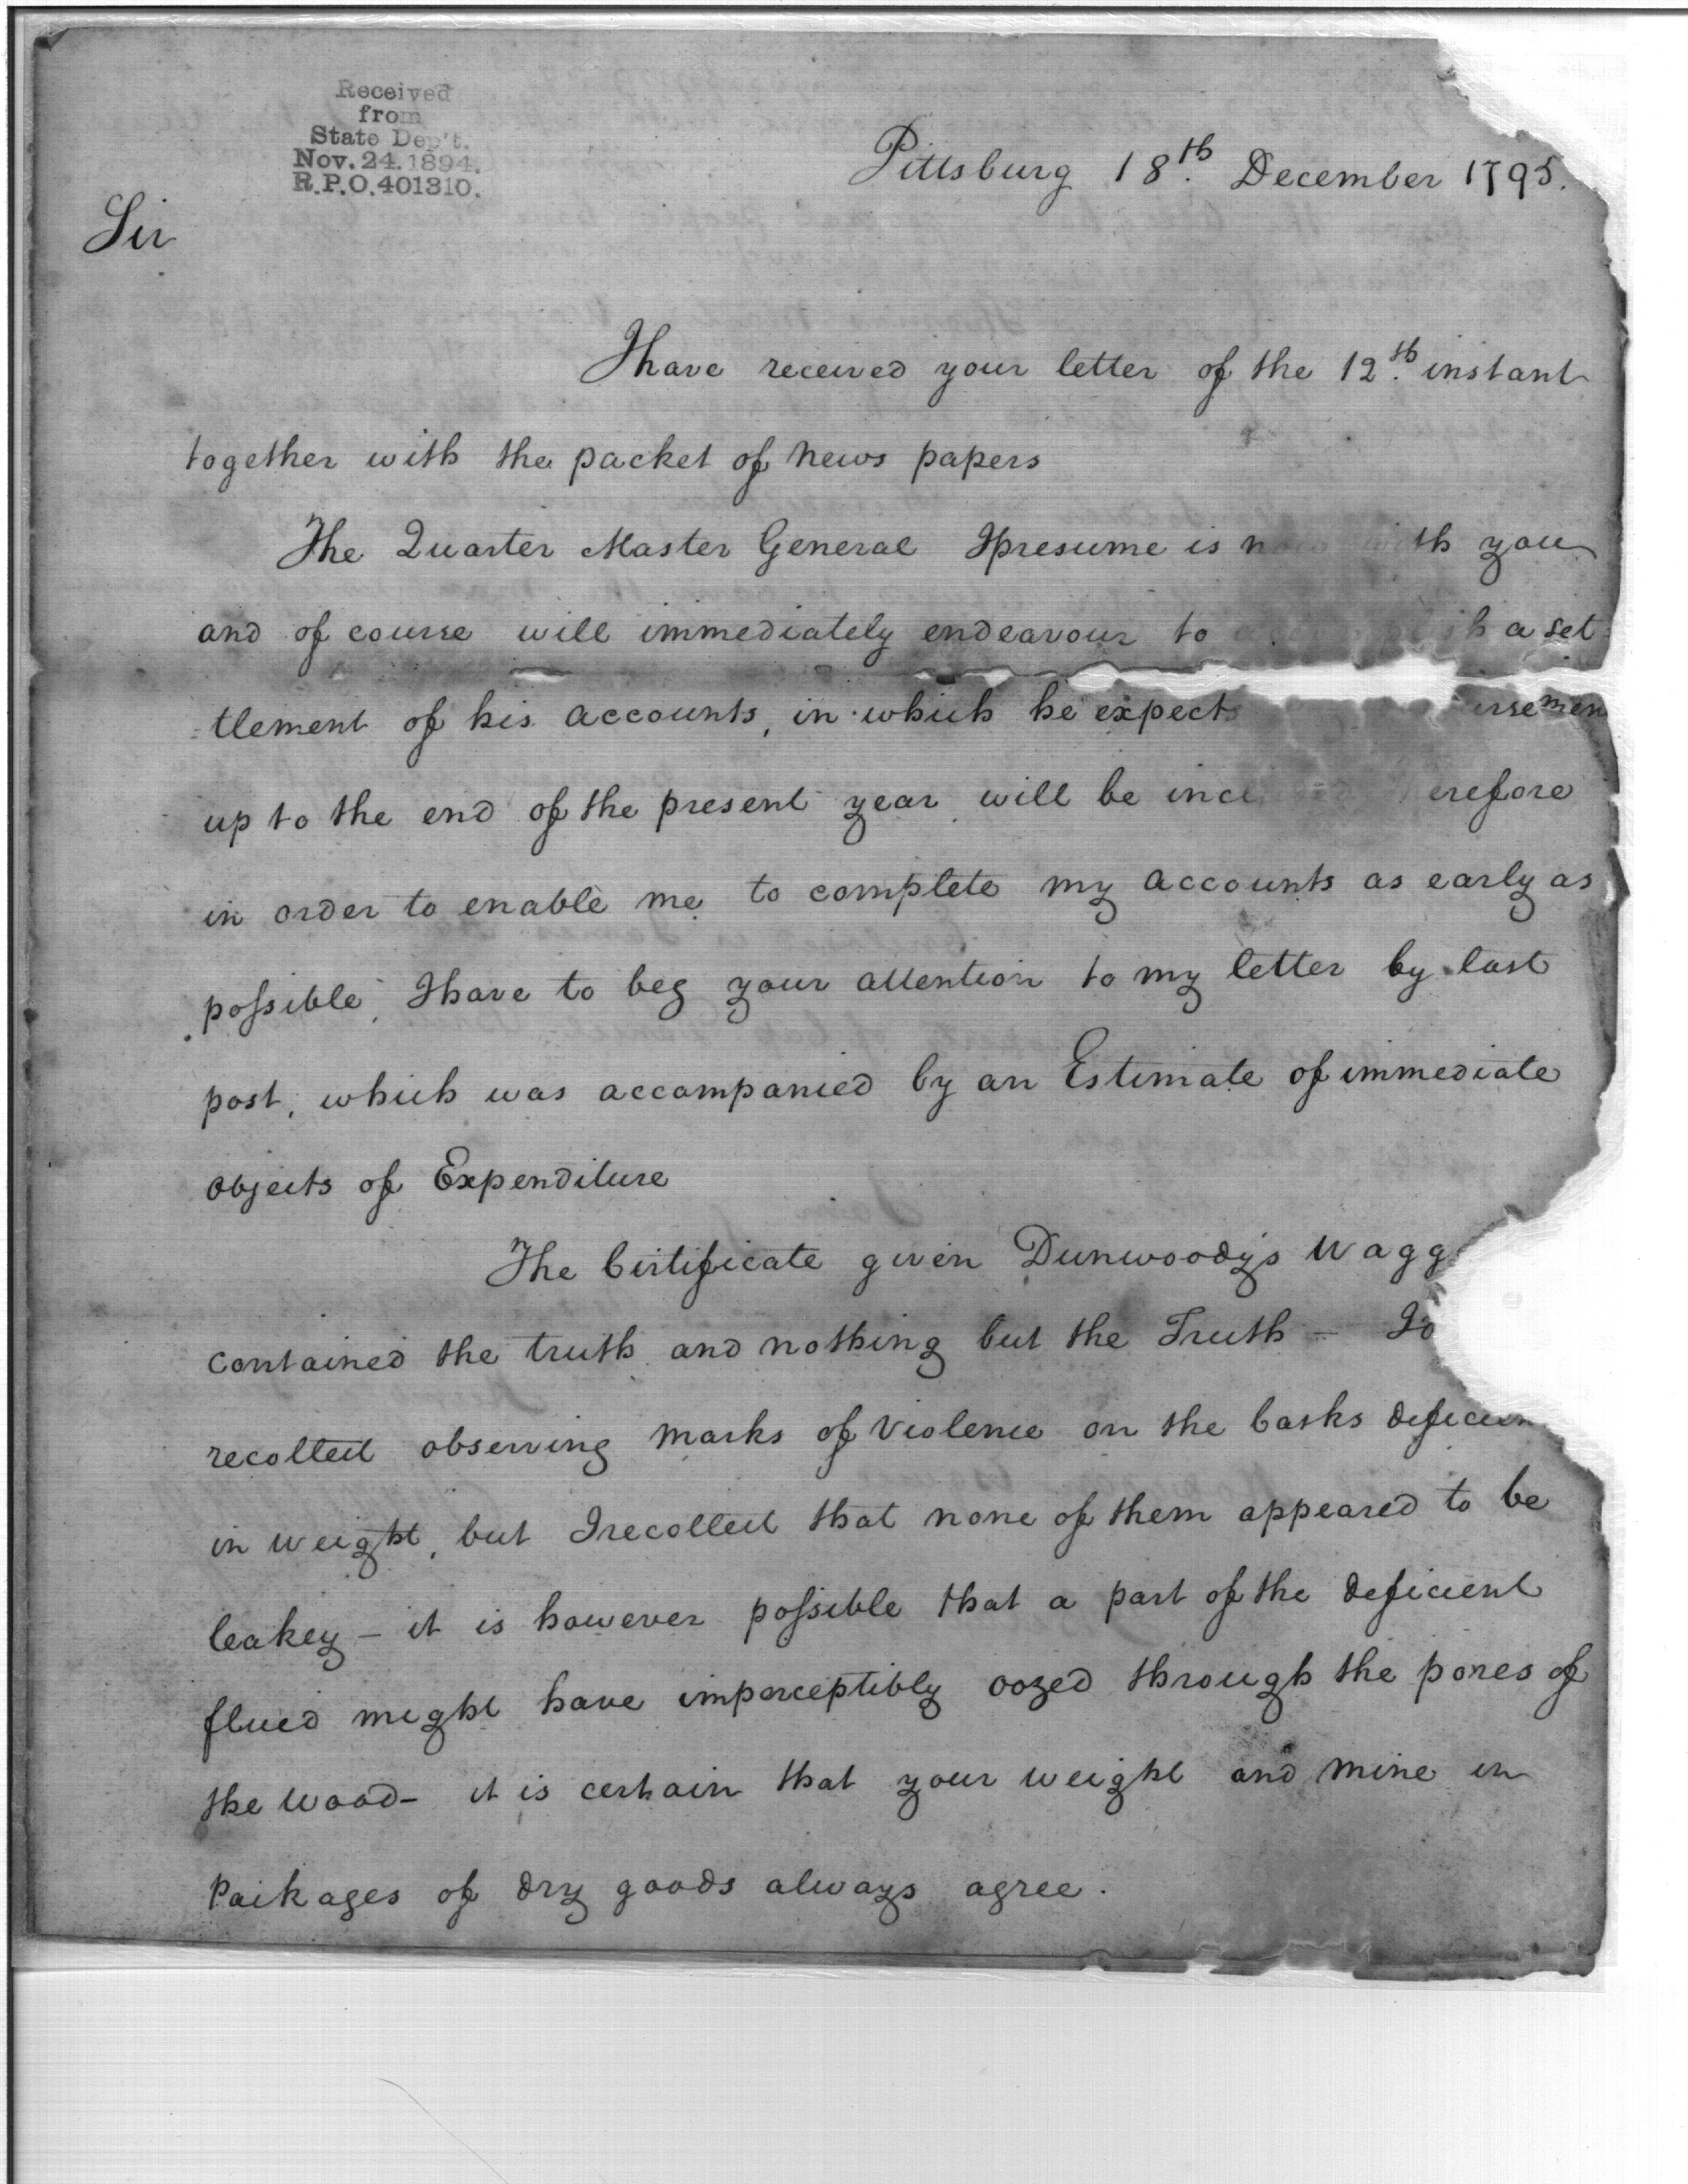 Received
from
State Dep't.
Nov. 24. 1894.
R.P.O. 401310.
Pittsburg 18th December 1795.
Sir
I have received your letter of the 12th instant
together with the packet of News papers
The Quarter Master General I presume is now with you
and of course will immediately endeavour to a set
tlement of his accounts, in which he expects
up to the end of the present year will be
in order to enable me to complete my accounts as early as
possible, I have to beg your attention to my letter by last
post, which was accompanied by an Estimate of immediate
objects of Expenditure
The Certificate given Dunwoody's
contained the truth and nothing but the Truth –
recollect observing marks of Violence on the Casks
in weight, but I recollect that none of them appeared to be
leakey – it is however possible that a part of the deficient
fluid might have imperceptibly oozed through the pores of
the wood – it is certain that your weight and mine in
Packages of dry goods always agree.